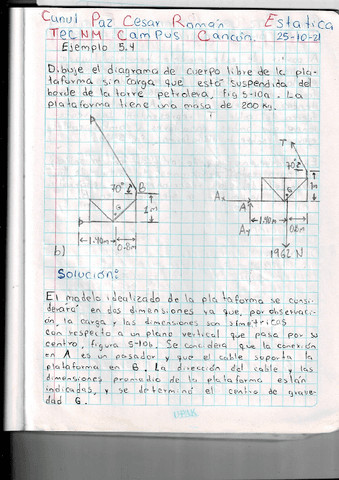 Canul Paz Cesar Román Estatica
TECNM Campus Cancún. 25-10-21
Ejemplo 5.4
Dibuje el diagrama de cuerpo libre de la pla-
taforma sin carga que está suspendida del
borde de la torre petrolera, fig 5-10a. La
plataforma tiene una masa de 200 Kg.
T
70°
70° B
G
1m
A
1.40m 0.8m
Ax
A
Ay
G
1m
1.40m 0.8m
1962 N
b)
Solución:
El modelo idealizado de la plataforma se consi-
derará en dos dimensiones ya que, por observaci-
ón, la carga y las dimensiones son simetricos
con respecto a un plano vertical que pasa por su
centro, figura 5-10b. Se considera que la conexión
en A es un pasador y que el cable soporta la
plataforma en B. La dirección del cable y las
dimensiones promedio de la plataforma están
indicadas, y se determinó el centro de grave-
dad G.